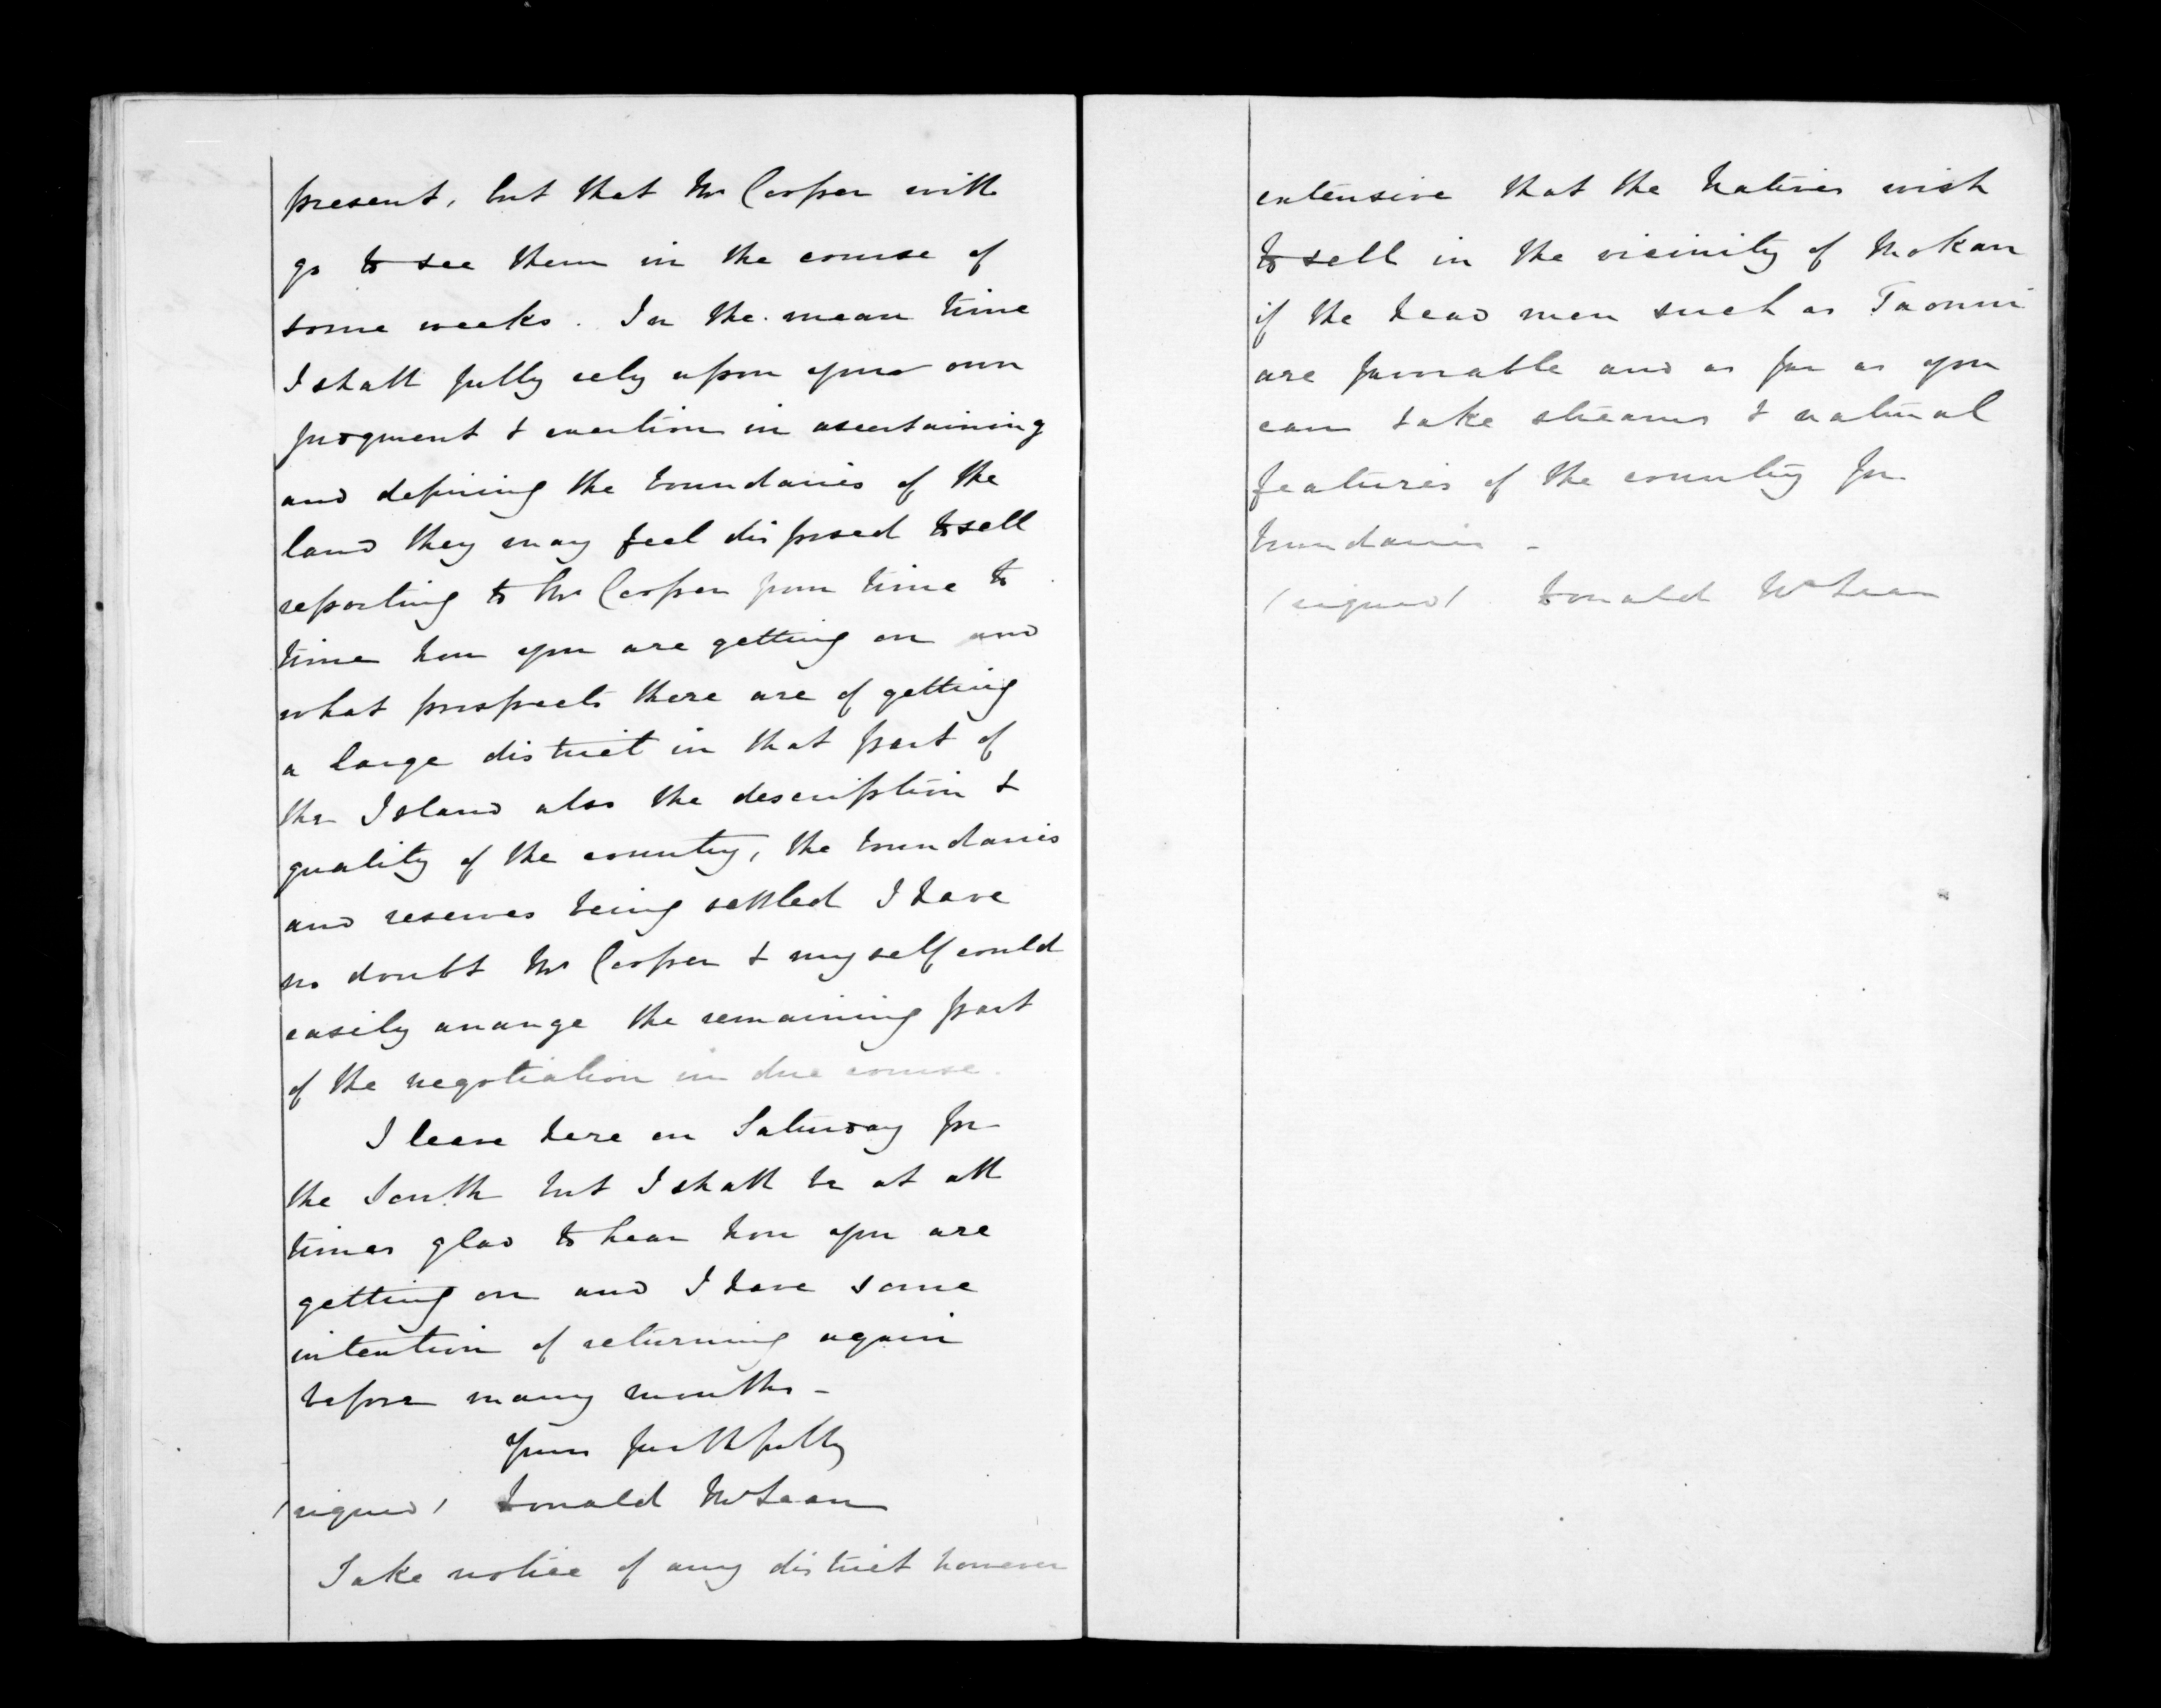 present, but that Mr Cooper will
go to see them in the course of
some weeks. In the mean time
I shall fully rely upon your own
judgment & exertion in ascertaining
and defining the boundaries of the
land they may feel disposed to sell
reporting to Mr Cooper from time to
time how you are getting on and
what prospects there are of getting
a large district in that part of
the Island also the description &
quality of the country, the boundaries
and reserves being settled I have
no doubt Mr Cooper & myself could
easily arrange the remaining part
of the negotiation in due course.
I leave here on Saturday for
the South but I shall be at all
times glad to hear how you are
getting on and I have some
intention of returning again
before many months -
Yours faithfully
(signed) Donald McLean
Take notice of any district however
extensive that the Natives wish
to sell in the vicinity of Mokau
if the head men such as Taonui
are favorable and as far as you
can take streams & natural
features of the country for
boundaries -
(signed) Donald McLean